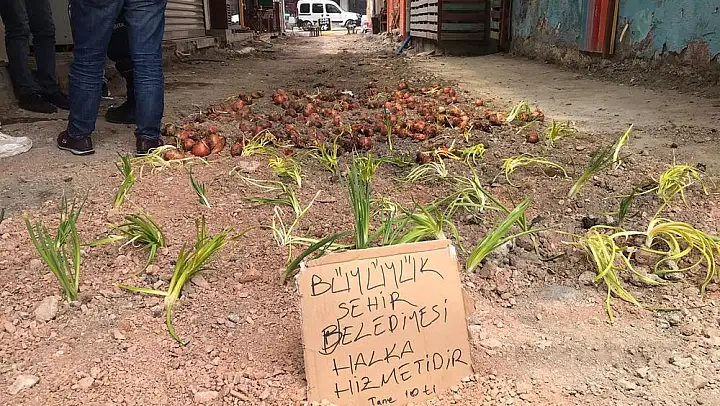 BÜYÜYÜK
ŞEHİR
BELEDİYESİ
HALKA
HİZMETİDİR
Tane 10 tl